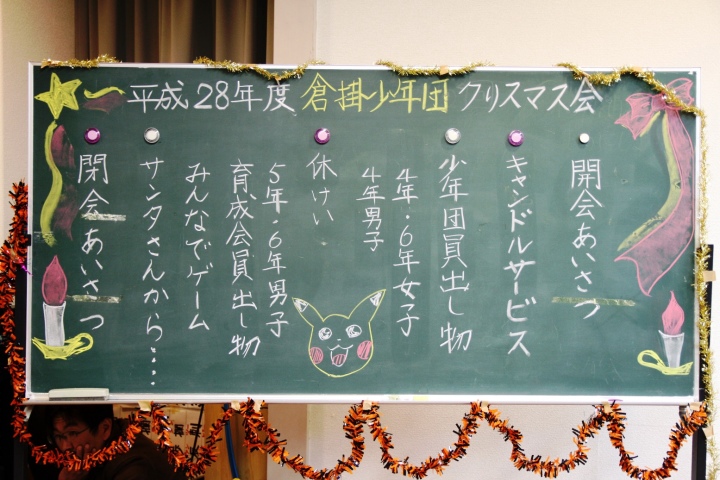 平成28年度 倉掛少年団 クリスマス会
開会あいさつ
キャンドルサービス
少年団員出し物
4年・6年女子
4年男子
休けい
5年・6年男子
育成会員出し物
みんなでゲーム
サンタさんから・・・・
閉会あいさつ